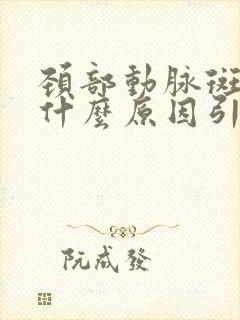 頚部動脉斑
什麼原因引
阮成發